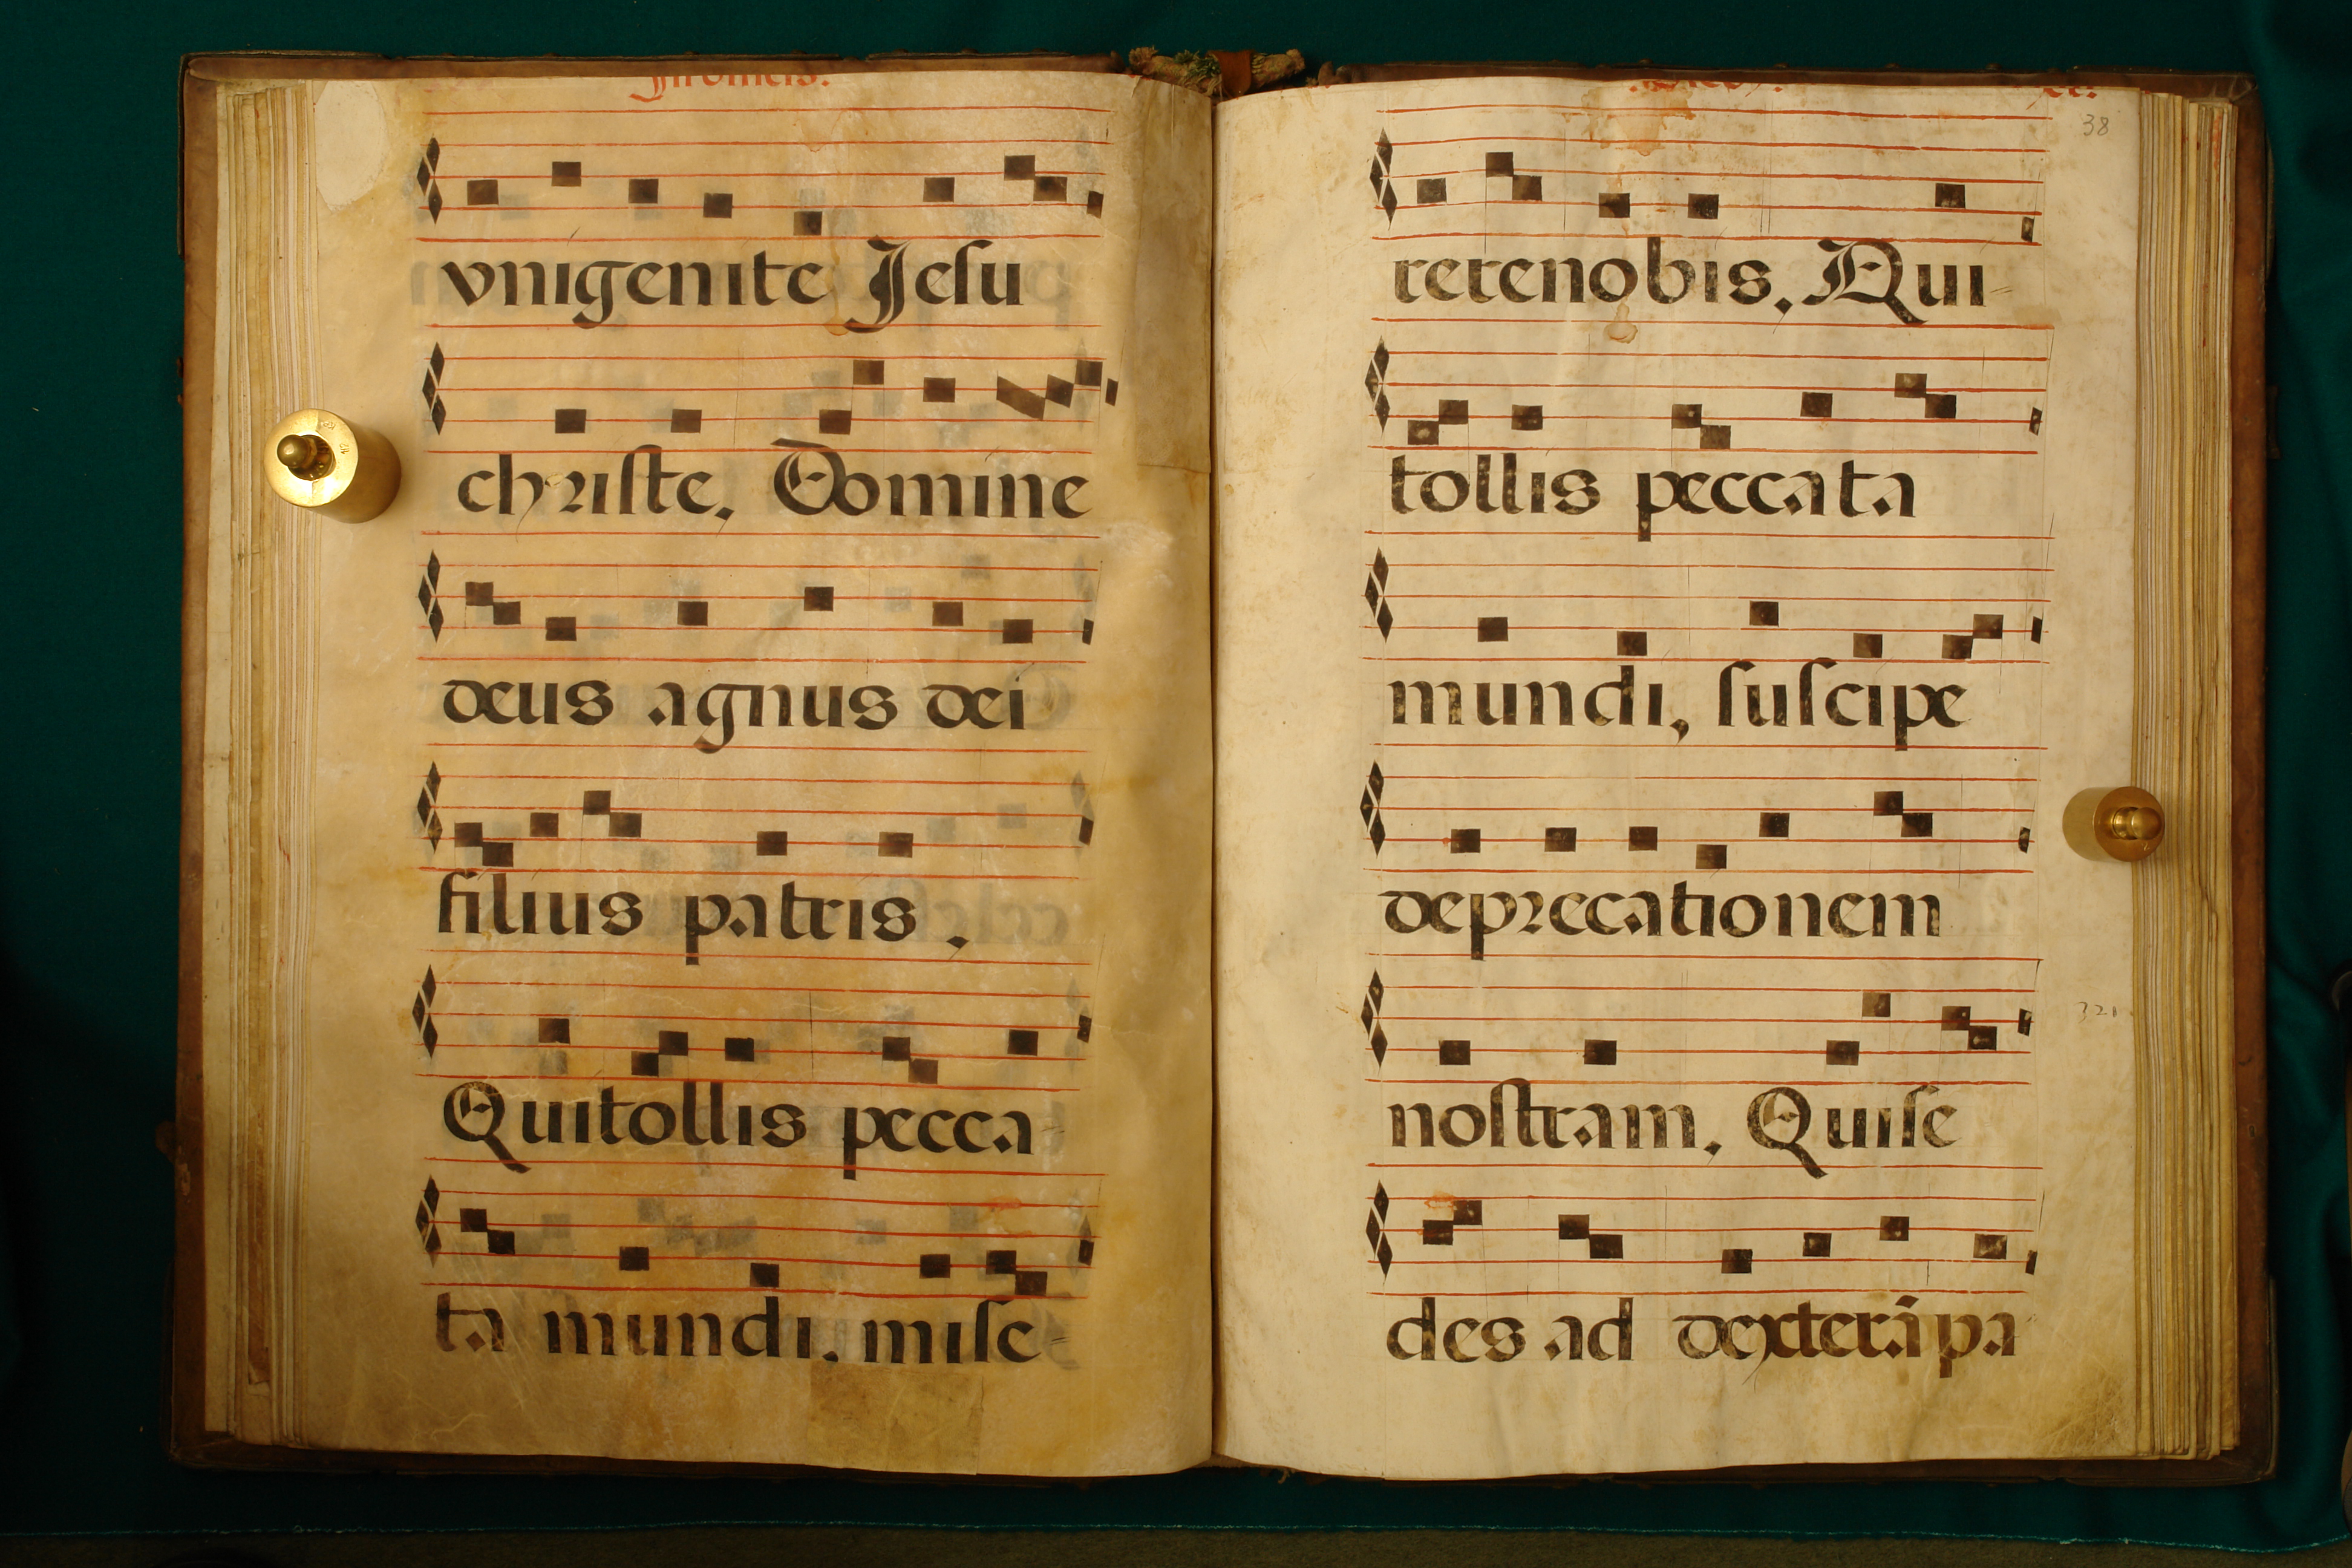 vnigenite Jesu
christe. Domine
deus agnus dei
filius patris.
Quitollis pecca-
ta mundi. mise-
38
rerenobis. Qui-
tollis peccata
mundi, suscipe
deprecationem
nostram. Quise
321
des ad dexterã pa